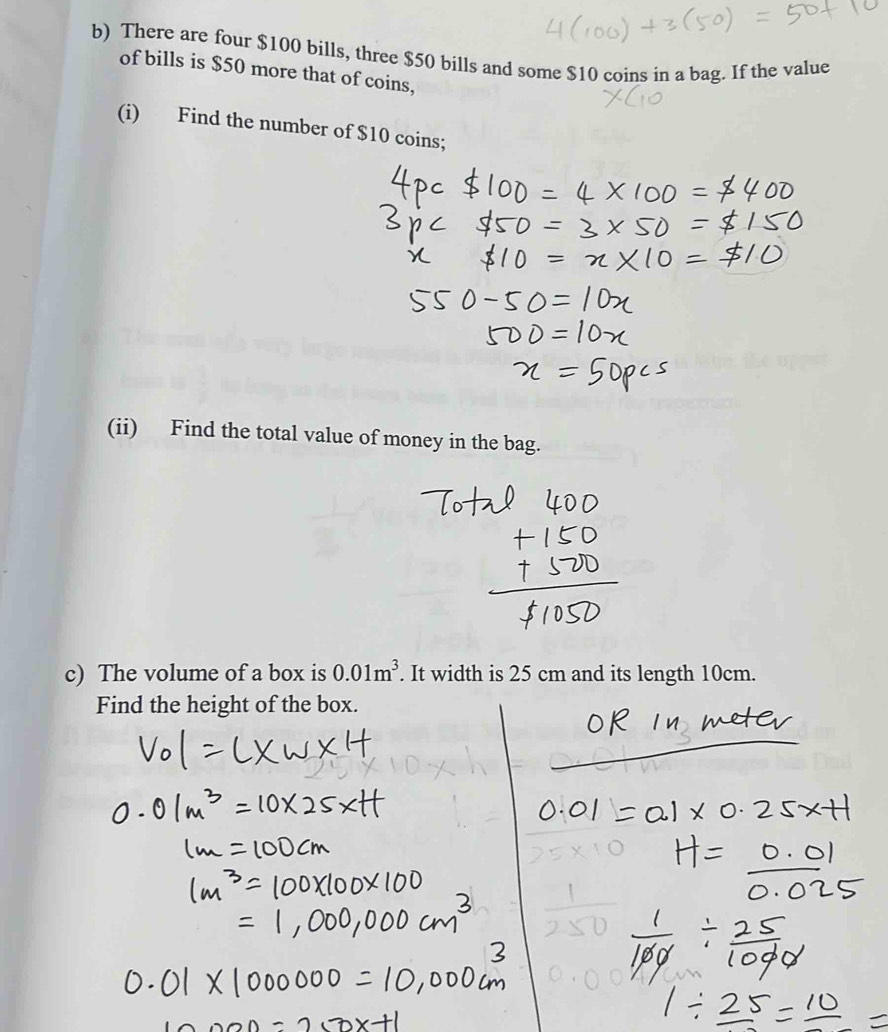 4(100) + 3(50) = 50+ 10
b) There are four $100 bills, three $50 bills and some $10 coins in a bag. If the value
of bills is $50 more that of coins,
x(10
(i) Find the number of $10 coins;
4pc $100 = 4 × 100 = $400
3pc $50 = 3 × 50 = $150
x $10 = x × 10 = $10
550 - 50 = 10x
500 = 10x
x = 50pcs
(ii) Find the total value of money in the bag.
Total 400
+ 150
+ 500
$1050
c) The volume of a box is 0.01m³. It width is 25 cm and its length 10cm.
Find the height of the box.
Vol = L×W×H
0.01m³ = 10×25×H
1m = 100cm
1m³ = 100×100×100
= 1,000,000 cm³
0.01 × 1000000 = 10,000cm³
10,000 = 250×H
OR In meter
0.01 = 0.1 × 0.25×H
H = 0.01/0.025
1/100 ÷ 25/1000
1 ÷ 25 = 10 =